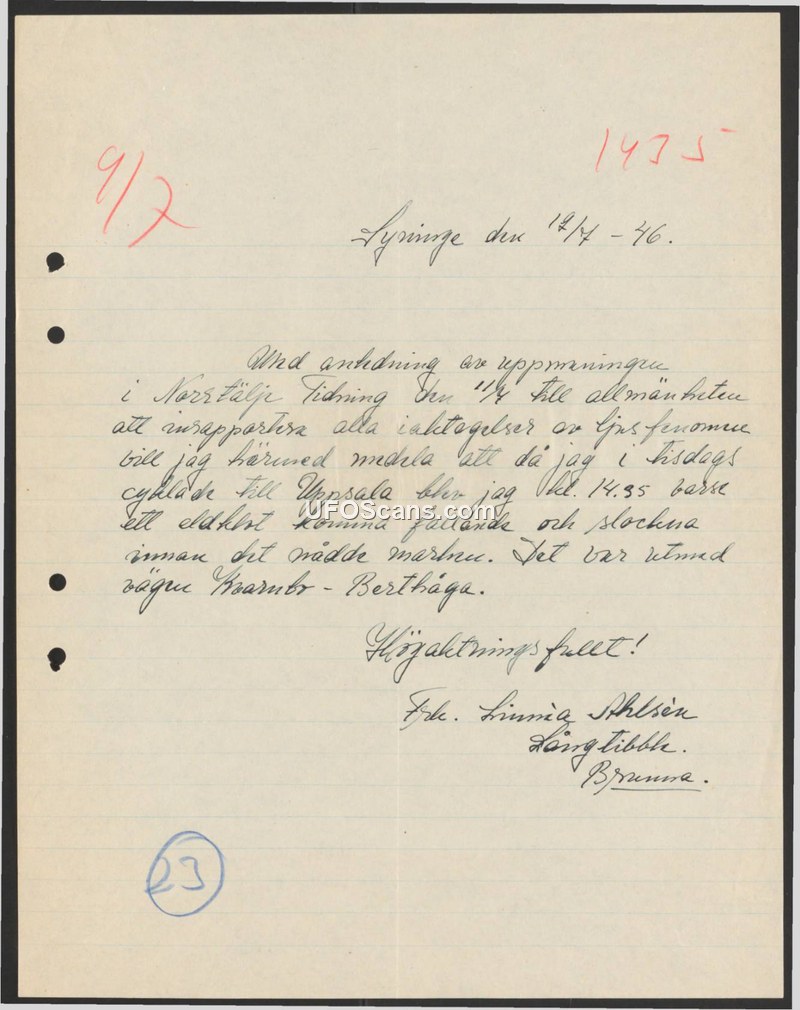 9/7
1435
den 12/7 - 46.
Med anledning av uppmaningen
i Norrtälje Tidning den 11/7 till allmänheten
att inrapportera alla iakttagelser av ljusfenomen
vill jag härmed meddela att då jag i tisdags
cyklade till Uppsala blev jag kl. 14.35 varse
ett eldklot komma fallande och slockna
UFOScans.com
innan det nådde marken. Det var utmed
vägen Kvarnbo - Berthåga.
Högaktningsfullt!
Frk. Linnéa Ahlsén
Långtibble.
Brunna.
23